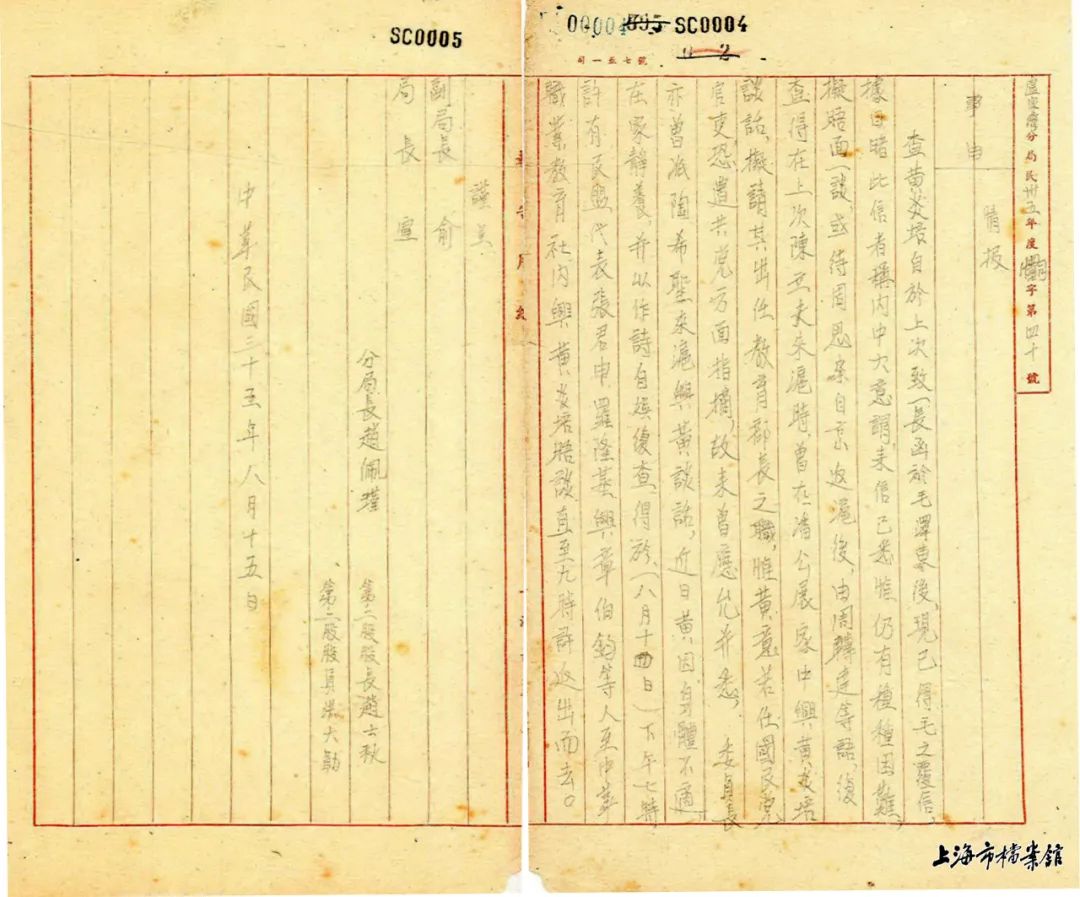 SC0005
00004 SC0004
號七至一司
盧家灣分局民卅五年度字第四十號
事由
情报
查黄炎培自於上次致一長函於毛澤東後,現已得毛之覆信,
據目睹此信者稱内中大意謂,来信已悉惟仍有種種困難,
擬晤面一談或待周恩来自京返滬後,由周轉達等語,復
查得在上次陳立夫来滬時,曾在潘公展家中與黄炎培
談話,擬請其出任教育部長之職,惟黄意若任國民党
官吏恐遭共党方面指摘,故未曾應允并悉,委員長
亦曾派陶希聖来滬與黄談話,近日黄因身體不適
在家静養,并以作詩自娱復查,得於(八月十四日)下午七時
許有民盟代表張君申羅隆基與章伯鈞等人至中華
職業教育社内與黄炎培晤談直至九時許返出而去。
謹呈
副局長 俞
局長 宣
分局長趙佩瑾
第二股股長趙士秋
第二股股員
中華民國三十五年八月十五日
上海市檔案館